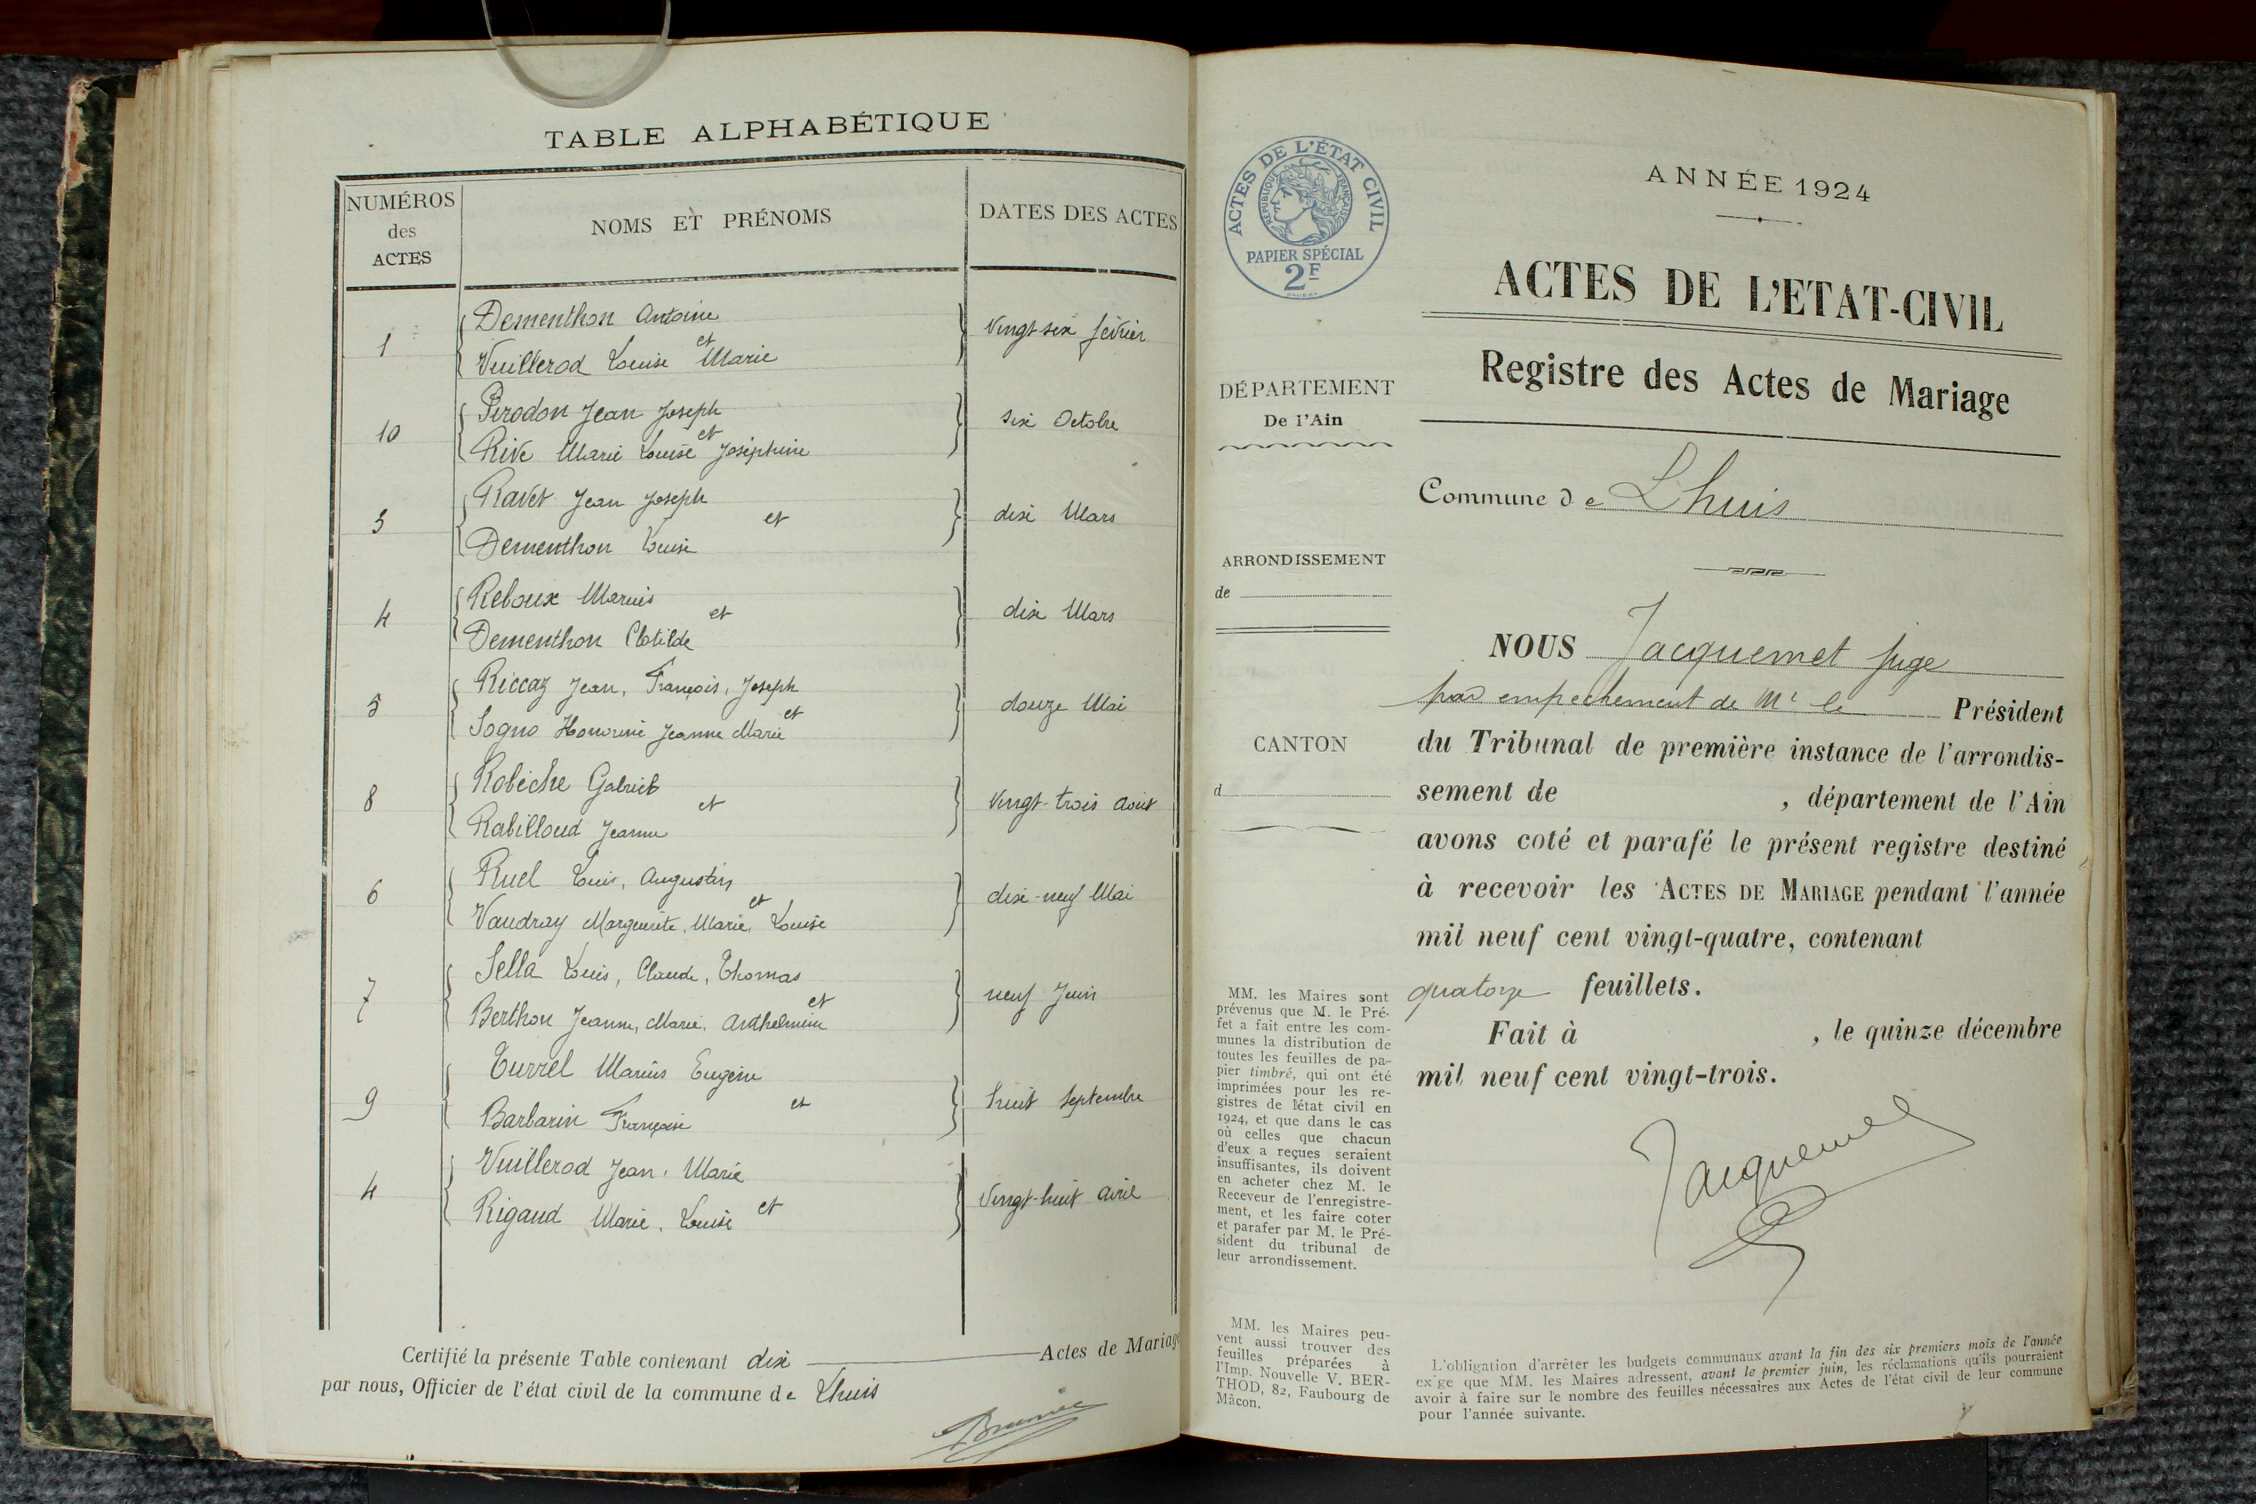 TABLE ALPHABÉTIQUE
NUMÉROS
des
ACTES
NOMS ET PRÉNOMS
DATES DES ACTES
1
Dementhon Antoine
et
Vuillerod Louise Marie
vingt six février
10
Pirodon Jean Joseph
et
Rive Marie Louise Joséphine
six Octobre
3
Ravet Jean Joseph
et
Dementhon Louise
dix Mars
4
Reboux Marius
et
Dementhon Clotilde
dix Mars
5
Riccaz Jean, François, Joseph
et
Sogno Honorine Jeanne Marie
douze Mai
8
Robiche Gabriel
et
Rabilloud Jeanne
vingt-trois Août
6
Ruel Louis, Augustin
et
Vaudray Marguerite, Marie, Louise
dix-neuf Mai
7
Sella Louis, Claude, Thomas
et
Berthon Jeanne, Marie, Anthelmine
neuf Juin
9
Turrel Marius Eugène
et
Barbarin Françoise
huit Septembre
4
Vuillerod Jean, Marie
et
Rigaud Marie, Louise
vingt-huit Avril
Certifié la présente Table contenant dix Actes de Mariage
par nous, Officier de l'état civil de la commune de Lhuis
ACTES DE L'ÉTAT CIVIL
RÉPUBLIQUE FRANÇAISE
PAPIER SPÉCIAL
2F
DÉPARTEMENT
De l'Ain
ARRONDISSEMENT
de
CANTON
d
MM. les Maires sont
prévenus que M. le Pré-
fet a fait entre les com-
munes la distribution de
toutes les feuilles de pa-
pier timbré, qui ont été
imprimées pour les re-
gistres de l'état civil en
1924, et que dans le cas
où celles que chacun
d'eux a reçues seraient
insuffisantes, ils doivent
en acheter chez M. le
Receveur de l'enregistre-
ment, et les faire coter
et parafer par M. le Pré-
sident du tribunal de
leur arrondissement.
MM. les Maires peu-
vent aussi trouver des
feuilles préparées à
l'Imp. Nouvelle V. BER-
THOD, 82, Faubourg de
Mâcon.
ANNÉE 1924
ACTES DE L'ETAT-CIVIL
Registre des Actes de Mariage
Commune de Lhuis
NOUS Jacquemet juge
par empechement de Mr le Président
du Tribunal de première instance de l'arrondis-
sement de , département de l'Ain
avons coté et parafé le présent registre destiné
à recevoir les ACTES DE MARIAGE pendant l'année
mil neuf cent vingt-quatre, contenant
quatorze feuillets.
Fait à , le quinze décembre
mil neuf cent vingt-trois.
Jacquemet
L'obligation d'arrêter les budgets communaux avant la fin des six premiers mois de l'année
exige que MM. les Maires adressent, avant le premier juin, les réclamations qu'ils pourraient
avoir à faire sur le nombre des feuilles nécessaires aux Actes de l'état civil de leur commune
pour l'année suivante.